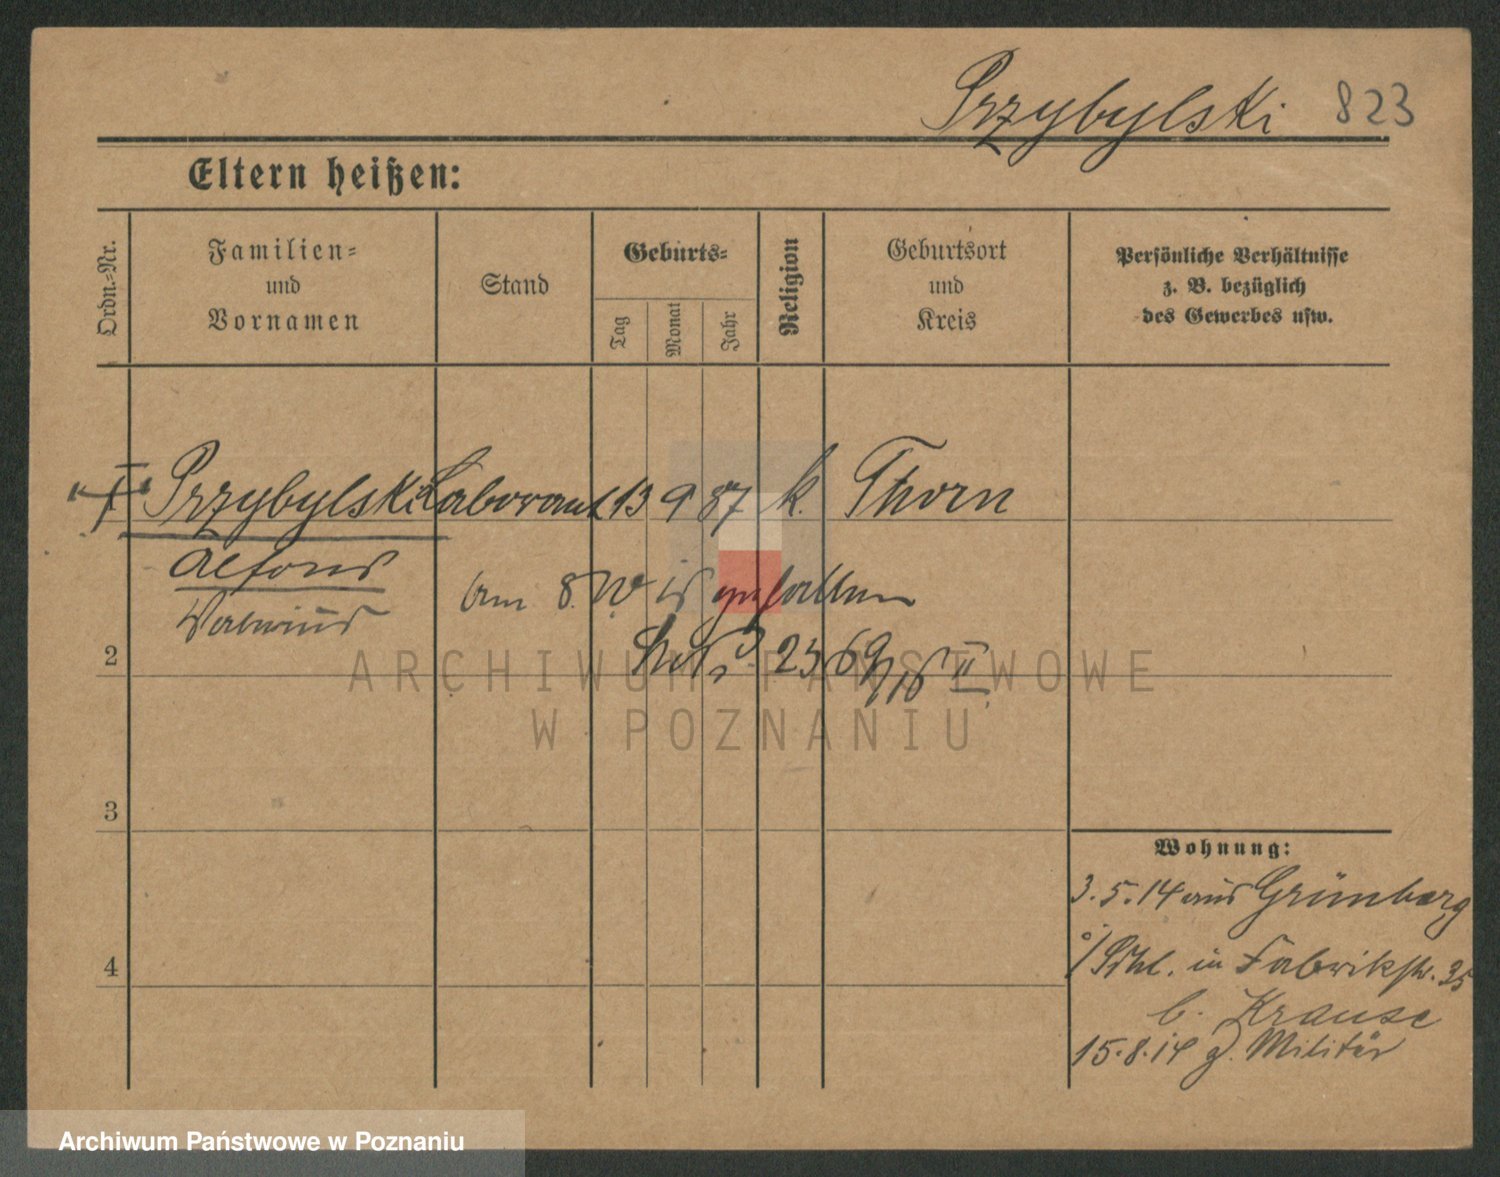 Przybylski 823
Eltern heißen:
Ordn.-Nr.
Familien-
und
Vornamen
Stand
Geburts-
Tag
Monat
Jahr
Religion
Geburtsort
und
Kreis
Persönliche Verhältnisse
z. B. bezüglich
des Gewerbes usw.
Przybylski Laborant 13 9 87 k. Thorn
Alfons
am 8. 15 gefallen
2 2369/15 II
ARCHIWUM PAŃSTWOWE
W POZNANIU
3
Wohnung:
3.5.14 aus Grünberg
i/Schl. in Fabrikstr. 35
4
b. Krause
15.8.14 z. Militär
Archiwum Państwowe w Poznaniu